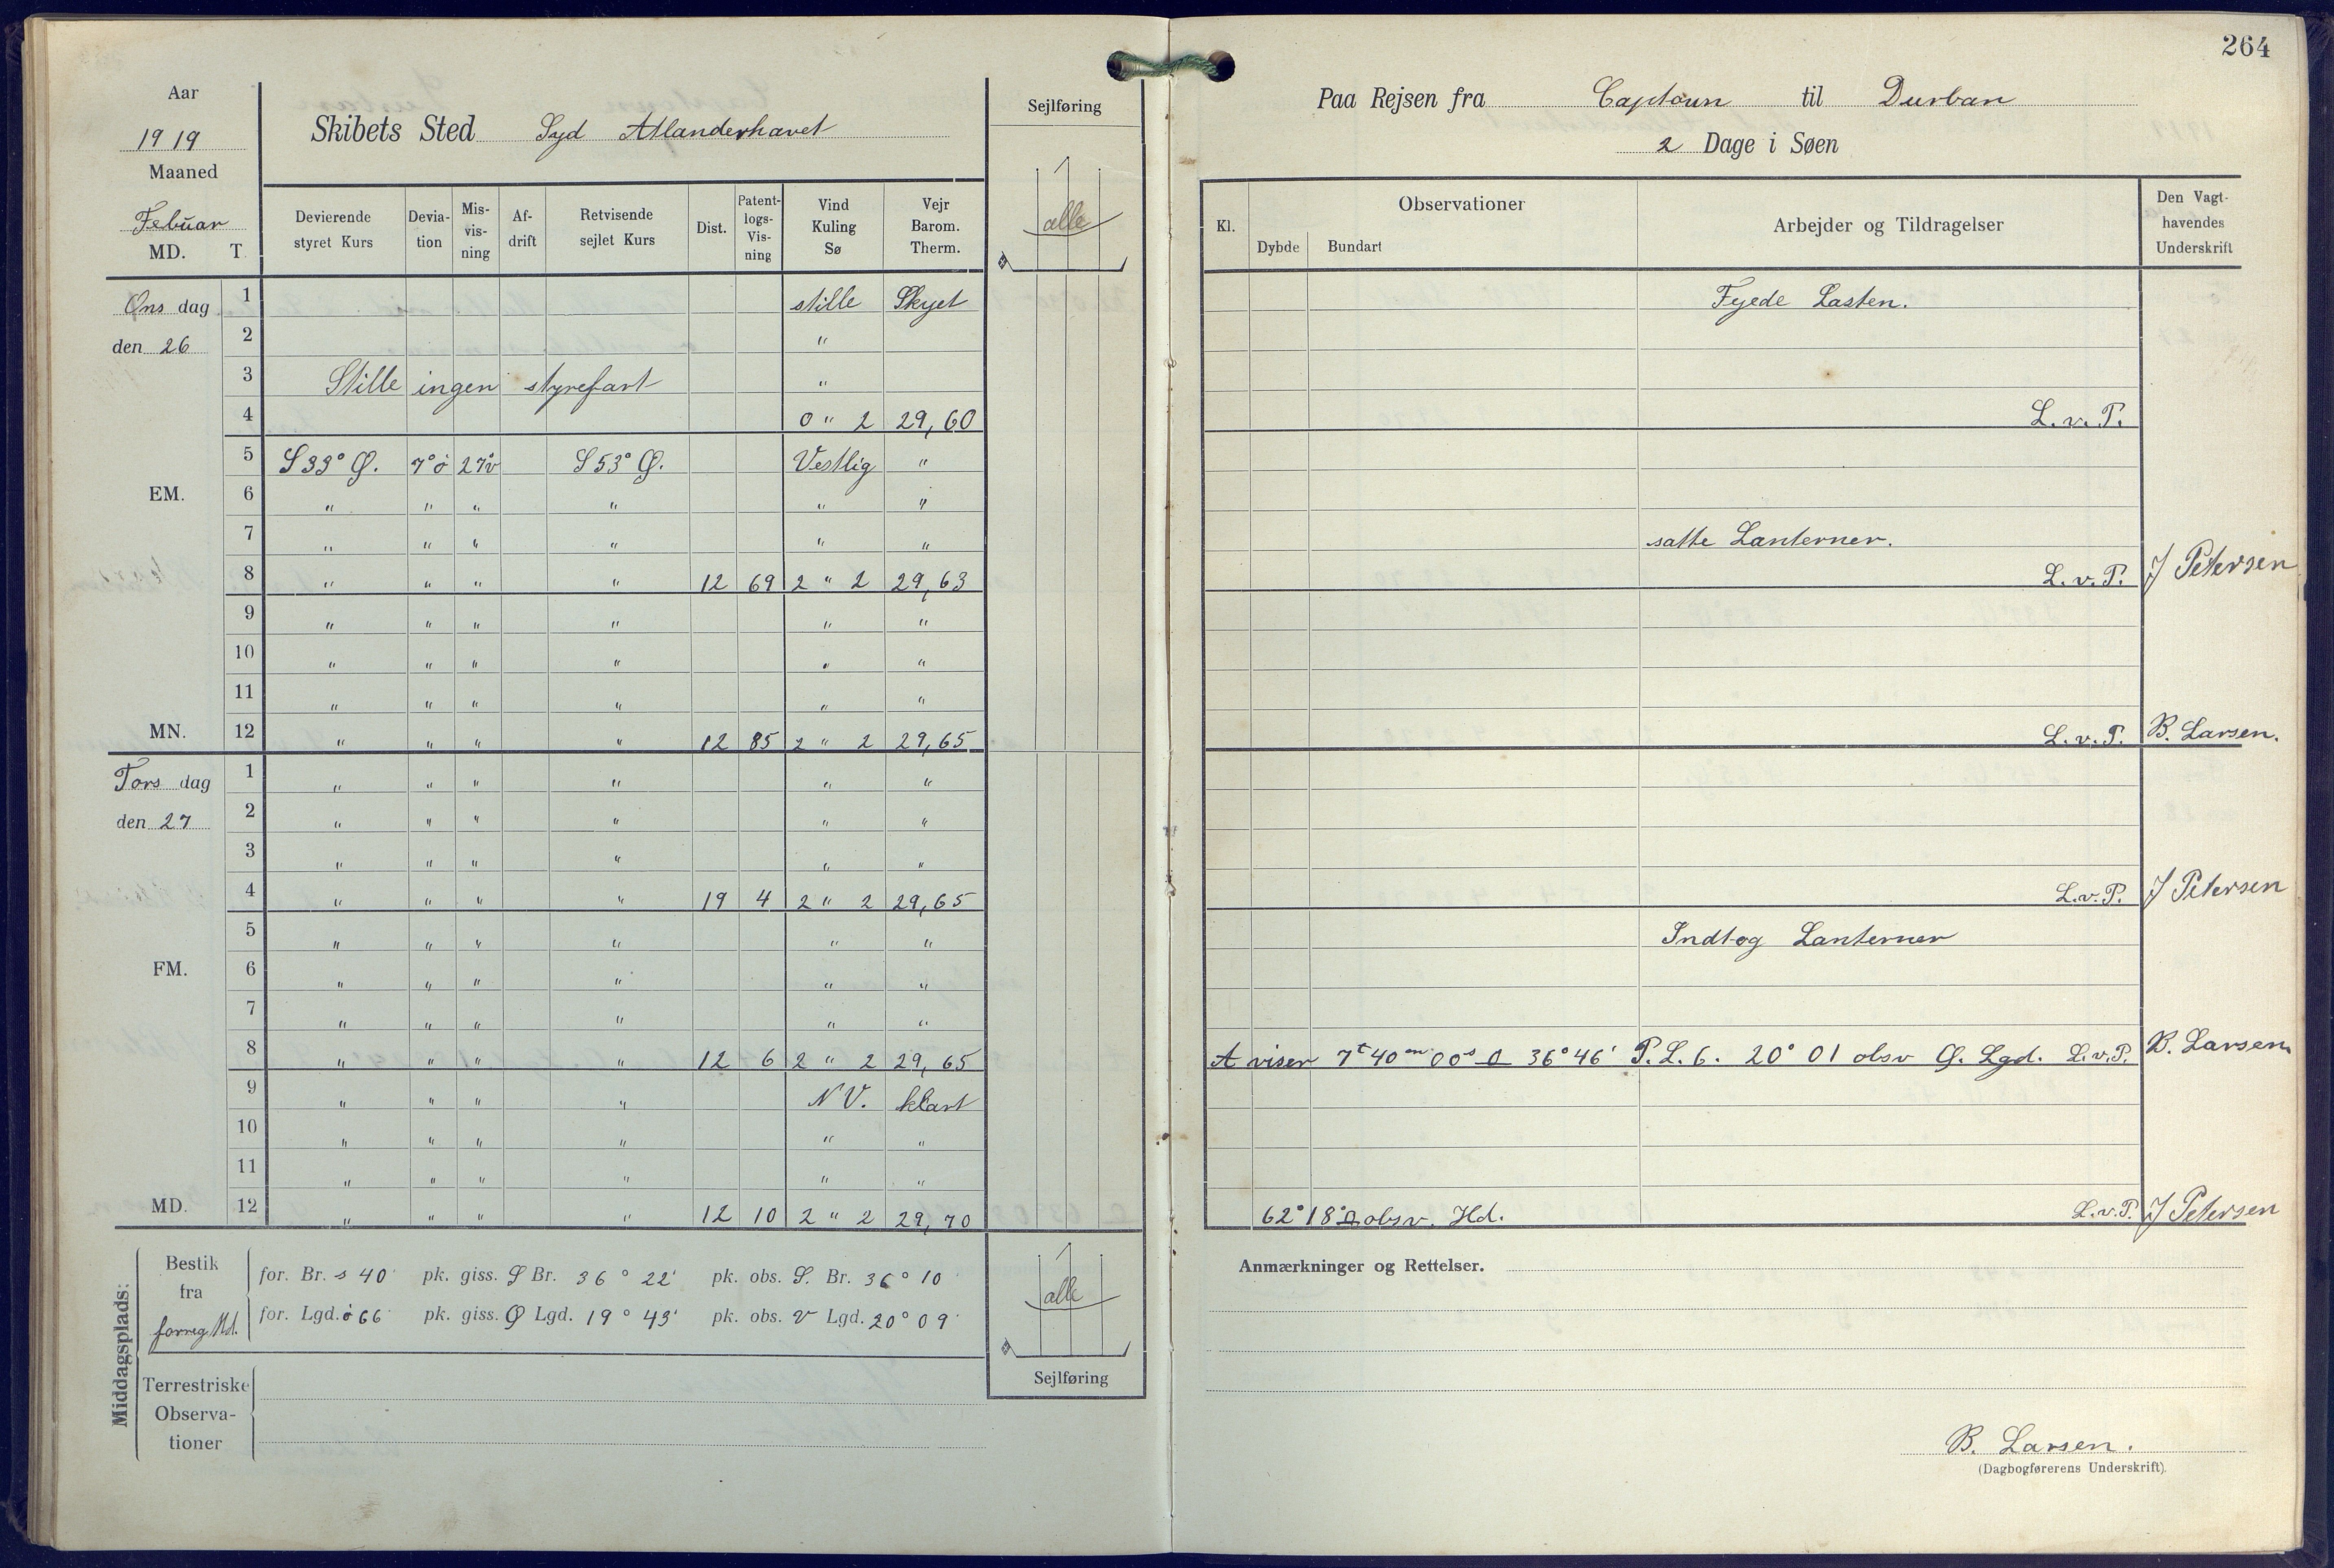 264
Aar
1919
Maaned
Febuar
MD. T.
Skibets Sted Syd Atlanderhavet
Sejlføring
alle
Devierende styret Kurs | Devia-tion | Mis-vis-ning | Af-drift | Retvisende sejlet Kurs | Dist. | Patent-logs-Vis-ning | Vind Kuling Sø | Vejr Barom. Therm.
Ons dag 1 stille Skyet
den 26 2 "
3 Stille ingen styrefart "
4 0 " 2 29,60
5 S 33° Ø. 7° ö 27° v S 53° Ø. Vestlig "
EM. 6 " " " " " "
7 " " " " " "
8 " " " " 12 69 2 " 2 29,63
9 " " " " " "
10 " " " " " "
11 " " " " " "
MN. 12 " " " " 12 85 2 " 2 29,65
Tors dag 1 " " " " " "
den 27 2 " " " " " "
3 " " " " " "
4 " " " " 19 4 2 " 2 29,65
5 " " " " " "
FM. 6 " " " " " "
7 " " " " " "
8 " " " " 12 6 2 " 2 29,65
9 " " " " N V. klart
10 " " " " " "
11 " " " " " "
MD. 12 " " " " 12 10 2 " 2 29,70
Middagsplads:
Bestik fra forreg Md.
for. Br. s 40' pk. giss. S Br. 36° 22' pk. obs. S. Br. 36° 10'
for. Lgd. ö 66' pk. giss. Ø Lgd. 19° 43' pk. obs. V Lgd. 20° 09'
Terrestriske Observa-tioner
alle
Sejlføring
Paa Rejsen fra Captoun til Durban
2 Dage i Søen
Kl. | Observationer | Dybde | Bundart | Arbejder og Tildragelser | Den Vagt-havendes Underskrift
Fyede Lasten.
L. v. P.
satte Lanterner.
L. v. P. J Petersen
L. v. P. B. Larsen.
L. v. P. J Petersen
Indtog Lanterner
A viser 7t 40m 00s 36° 46' P. L. 6. 20° 01 obsv Ø. Lgd. L. v. P. B. Larsen
62° 18' obsv. Hd. L. v. P. J Petersen
Anmærkninger og Rettelser.
B. Larsen.
(Dagbogførerens Underskrift).